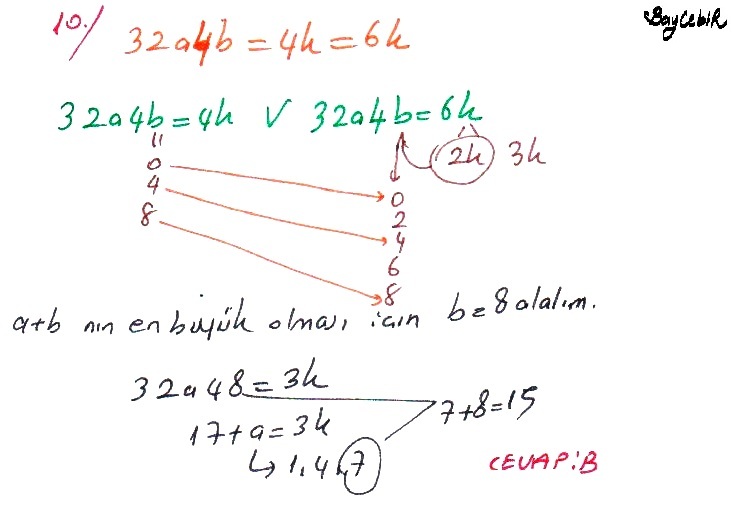 10.) 32a4b = 4k = 6k
BayCebir
32a4b = 4k V 32a4b = 6k
"
0
4
8
2k 3k
0
2
4
6
8
a+b nın en büyük olması için b=8 alalım.
32a48 = 3k
17+a = 3k
↳ 1,4,7
7+8=15
CEVAP:B